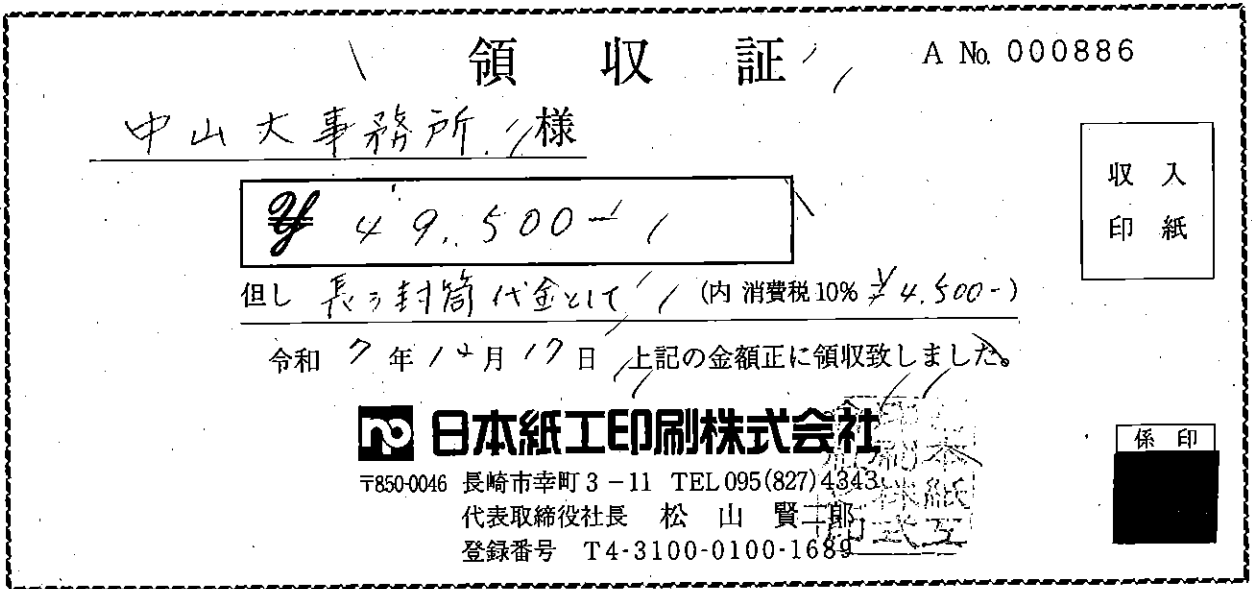 領収証
A No. 000886
中山大事務所 様
収入
印紙
¥ 49,500-
但し 長3封筒代金として (内 消費税10% ¥4,500-)
令和 7年12月17日 上記の金額正に領収致しました。
日本紙工印刷株式会社
〒850-0046 長崎市幸町3-11 TEL 095(827)4343
代表取締役社長 松山賢二郎
登録番号 T4-3100-0100-1689
係印